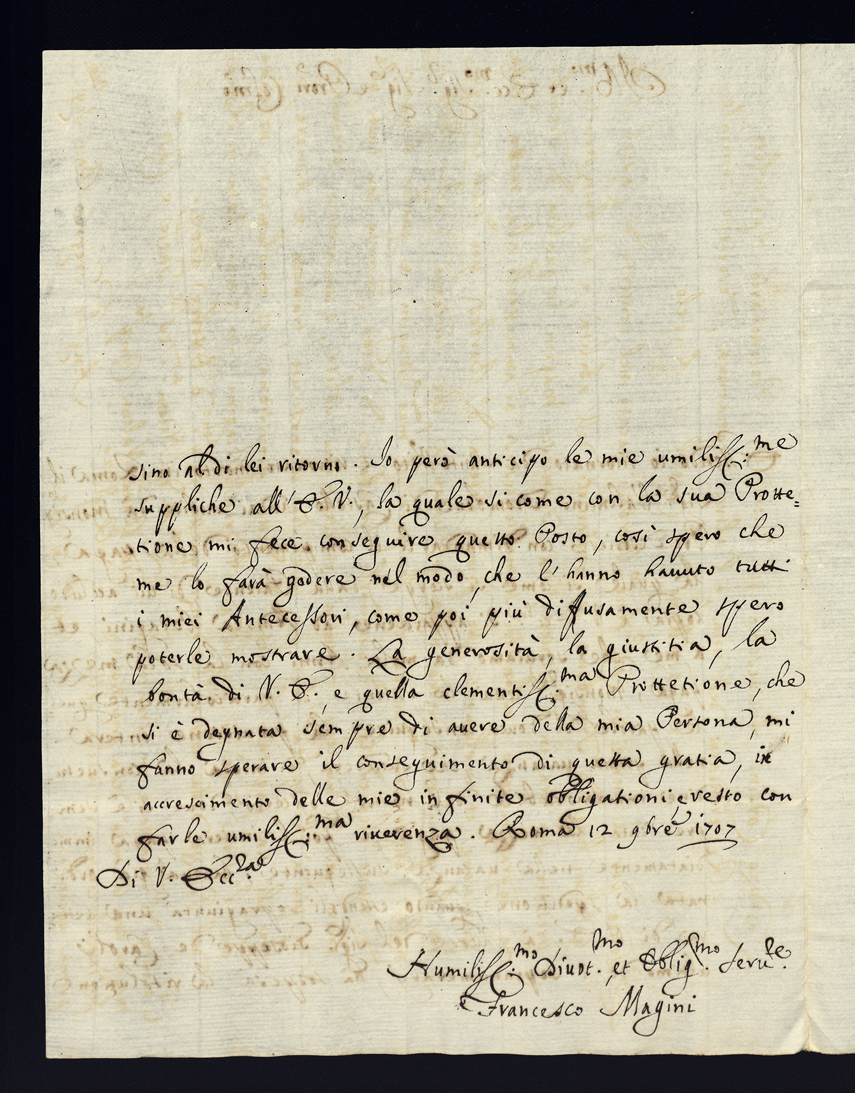 sino al di lei ritorno. Io però anticipo le mie umiliss:me
suppliche all'E.V., la quale si come con la sua Prote=
tione mi fece conseguire questo Posto, così spero che
me lo farà godere nel modo, che l'hanno havuto tutti
i miei Antecessori, come poi più diffusamente spero
poterle mostrare. La generosità, la giustitia, la
bontà di V.E., e quella clementiss:ma Prottetione, che
si è degnata sempre di avere della mia Persona, mi
fanno sperare il conseguimento di questa gratia, in
accrescimento delle mie infinite obligationi, e resto con
farle umiliss:ma riverenza. Roma 12 9bre 1707
Di V. Ecc.za
Humiliss:mo Divot.mo, et Oblig.mo Serv.re
Francesco Magini